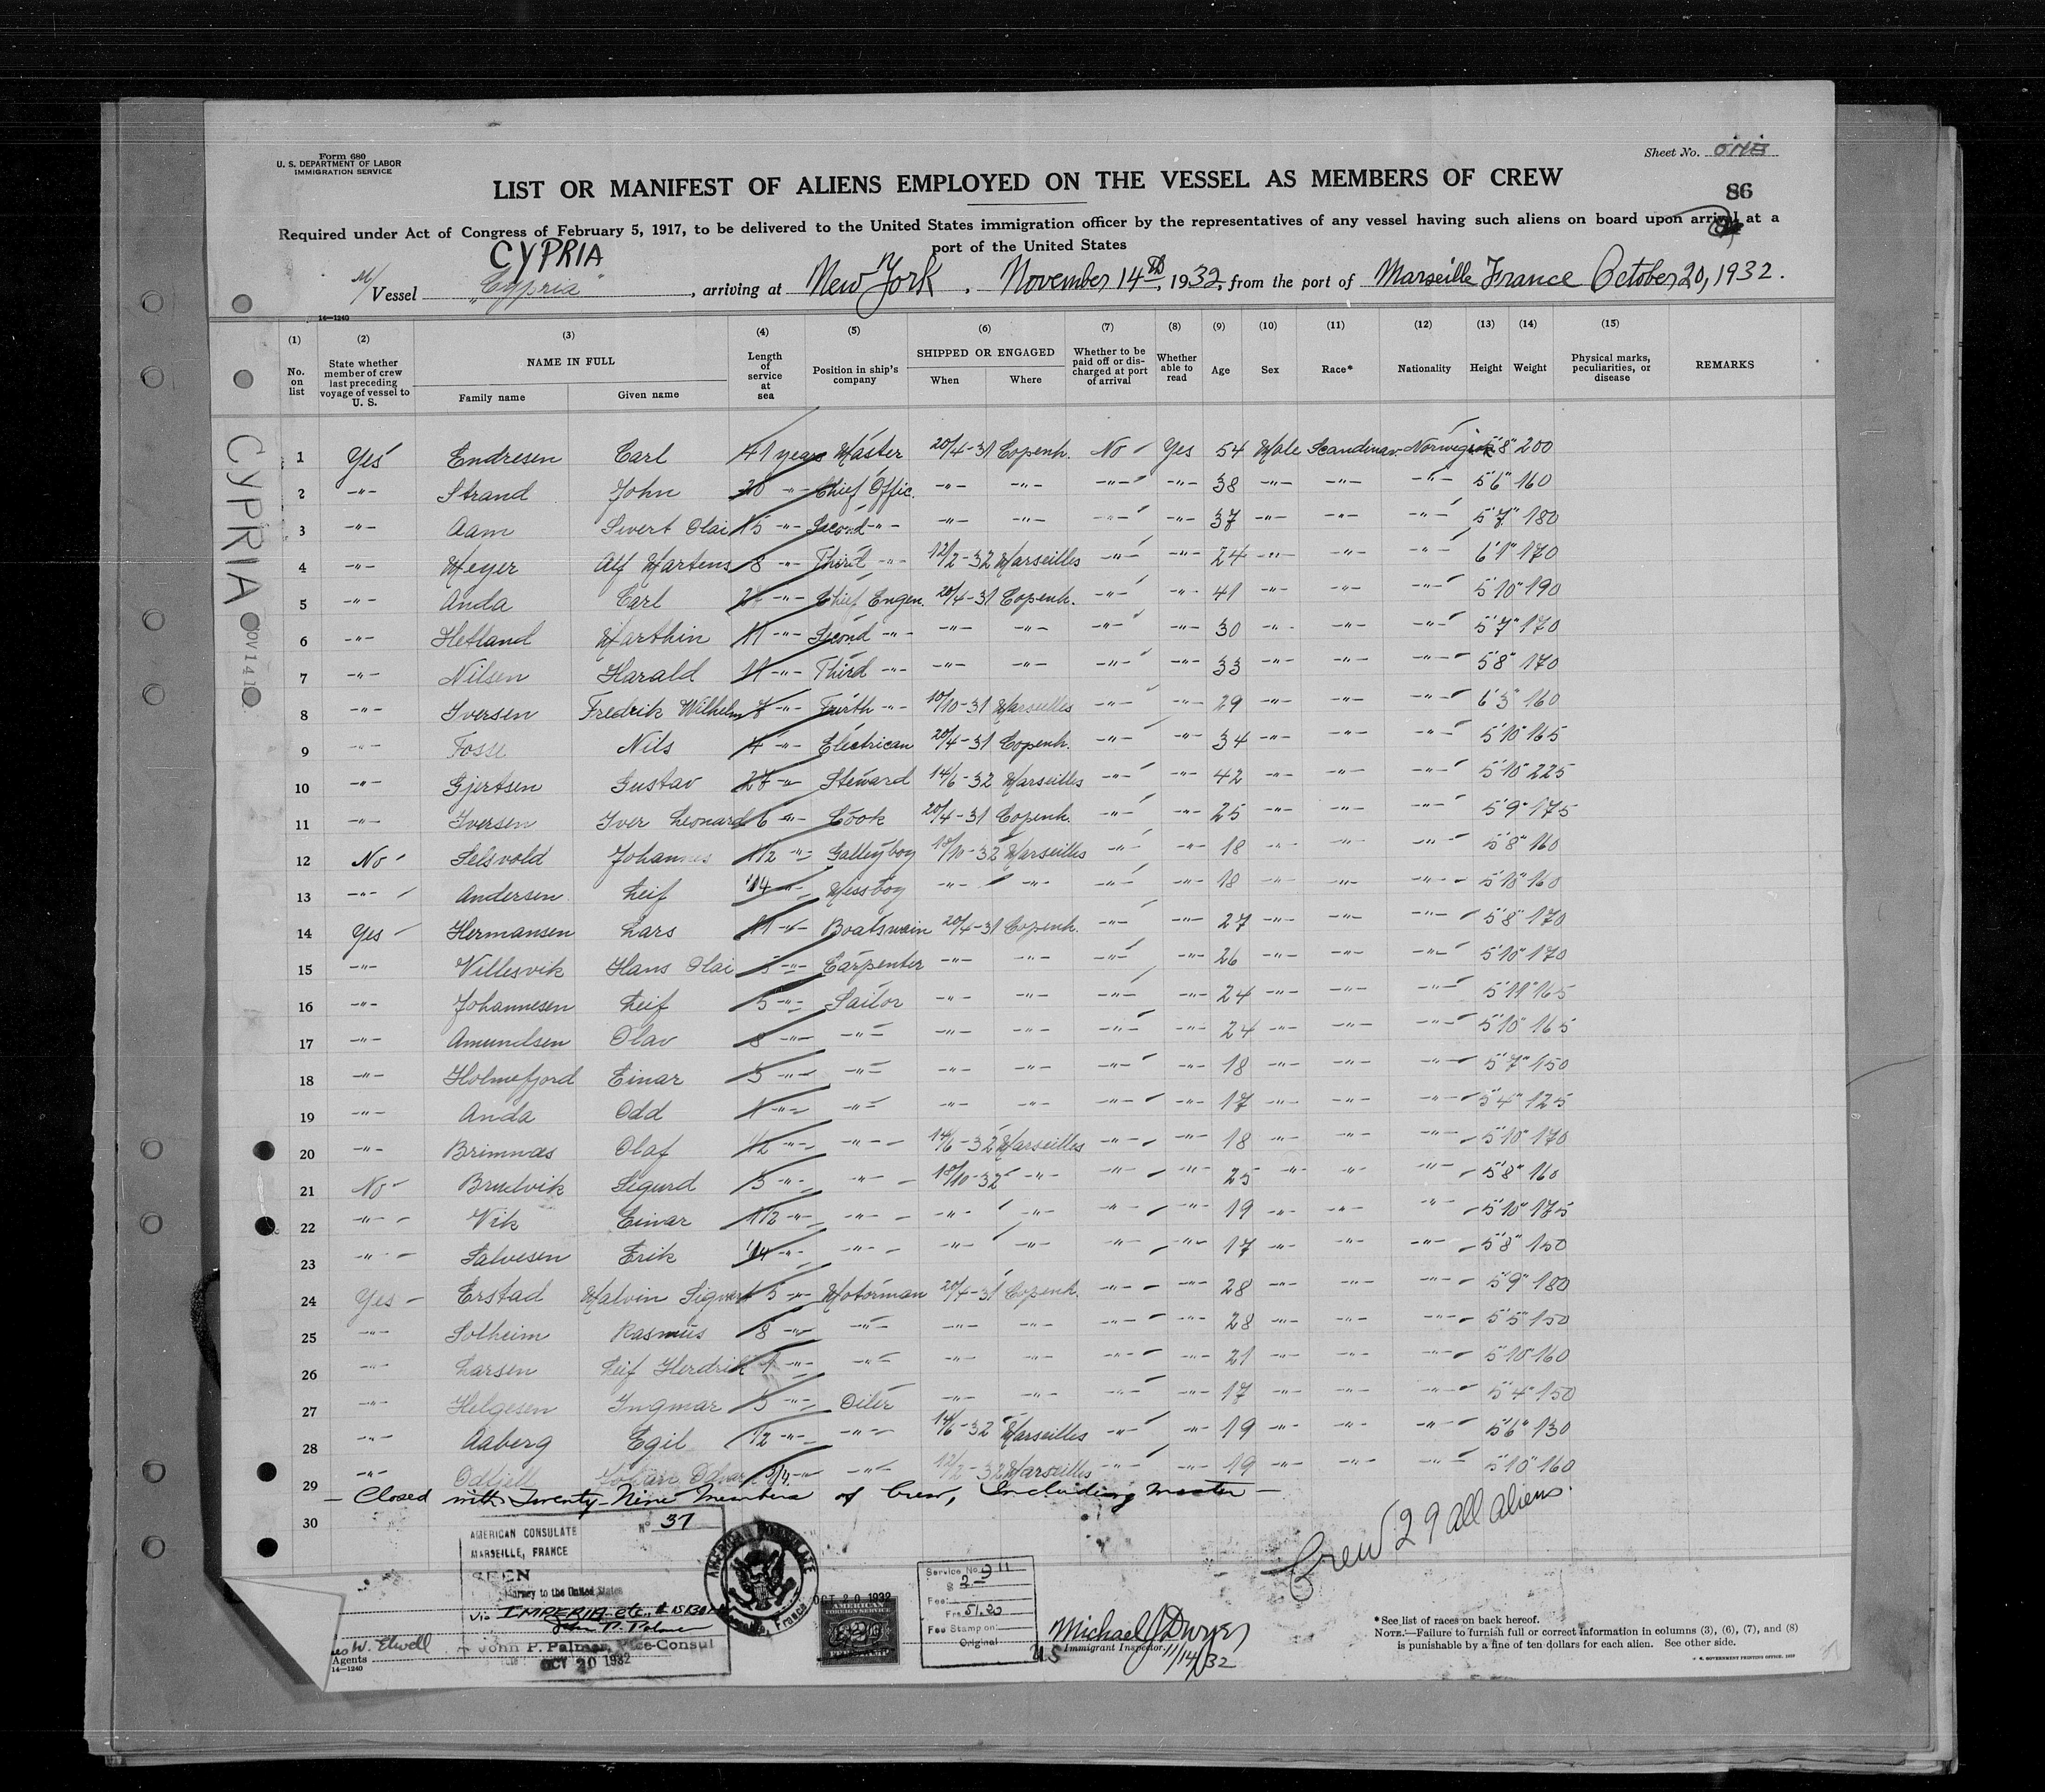 Form 680
U. S. DEPARTMENT OF LABOR
IMMIGRATION SERVICE
Sheet No. ONE
LIST OR MANIFEST OF ALIENS EMPLOYED ON THE VESSEL AS MEMBERS OF CREW
86
Required under Act of Congress of February 5, 1917, to be delivered to the United States immigration officer by the representatives of any vessel having such aliens on board upon arrival at a
port of the United States
CYPRIA
M/Vessel "Cypria", arriving at New York. November 14th, 1932, from the port of Marseille France October 20, 1932.
14—1240
(1) (2) (3) (4) (5) (6) (7) (8) (9) (10) (11) (12) (13) (14) (15)
No. on list
State whether member of crew last preceding voyage of vessel to U. S.
NAME IN FULL
Family name Given name
Length of service at sea
Position in ship's company
SHIPPED OR ENGAGED
When Where
Whether to be paid off or discharged at port of arrival
Whether able to read
Age Sex Race* Nationality Height Weight
Physical marks, peculiarities, or disease
REMARKS
CYPRIA
NOV 14
1 Yes Endresen Carl 41 years Master 20/4-31 Copenh. No Yes 54 Male Scandinav. Norwegian 5'8" 200
2 -"- Strand John 20 -"- Chief Offic. -"- -"- -"- -"- 38 -"- -"- -"- 5'6" 160
3 -"- Aam Sivert Olai 15 -"- Second -"- -"- -"- -"- -"- 37 -"- -"- -"- 5'7" 180
4 -"- Meyer Alf Martens 8 -"- Third -"- 12/2-32 Marseilles -"- -"- 24 -"- -"- -"- 6'1" 170
5 -"- Anda Carl -"- Chief Engen. 20/4-31 Copenh. -"- -"- 41 -"- -"- -"- 5'10" 190
6 -"- Hetland Marthin 11 -"- Second -"- -"- -"- -"- -"- 30 -"- -"- -"- 5'7" 170
7 -"- Nilsen Harald 11 -"- Third -"- -"- -"- -"- -"- 33 -"- -"- -"- 5'8" 170
8 -"- Iversen Fredrik Wilhelm 7 -"- Fourth -"- 10/10-31 Marseilles -"- -"- 29 -"- -"- -"- 6'3" 160
9 -"- Fosse Nils 4 -"- Electrican 20/4-31 Copenh. -"- -"- 34 -"- -"- -"- 5'10" 165
10 -"- Gjertsen Gustav 27 -"- Steward 14/6-32 Marseilles -"- -"- 42 -"- -"- -"- 5'10" 225
11 -"- Iversen Iver Leonard 6 -"- Cook 20/4-31 Copenh. -"- -"- 25 -"- -"- -"- 5'9" 175
12 No Selsvold Johannes 1 1/2 -"- Galleyboy 18/10-32 Marseilles -"- -"- 18 -"- -"- -"- 5'8" 160
13 -"- Andersen Leif 1/4 -"- Messboy -"- -"- -"- -"- 18 -"- -"- -"- 5'10" 160
14 Yes Hermansen Lars 11 -"- Boatswain 20/4-31 Copenh. -"- -"- 27 -"- -"- -"- 5'8" 170
15 -"- Villesvik Hans Olai 5 -"- Carpenter -"- -"- -"- -"- 26 -"- -"- -"- 5'10" 170
16 -"- Johannesen Leif 5 -"- Sailor -"- -"- -"- -"- 24 -"- -"- -"- 5'11" 165
17 -"- Amundsen Olav 8 -"- -"- -"- -"- -"- -"- 24 -"- -"- -"- 5'10" 165
18 -"- Holmefjord Einar 3 -"- -"- -"- -"- -"- -"- 18 -"- -"- -"- 5'7" 150
19 -"- Anda Odd 1 -"- -"- -"- -"- -"- -"- 17 -"- -"- -"- 5'4" 125
20 -"- Brimnæs Olaf 1/2 -"- -"- 14/6-32 Marseilles -"- -"- 18 -"- -"- -"- 5'10" 170
21 No Brudvik Sigurd 5 -"- -"- 18/10-32 -"- -"- -"- 25 -"- -"- -"- 5'8" 160
22 -"- Vik Einar 1 1/2 -"- -"- -"- -"- -"- -"- 19 -"- -"- -"- 5'10" 175
23 -"- Salvesen Erik 1/4 -"- -"- -"- -"- -"- -"- 17 -"- -"- -"- 5'8" 150
24 Yes Erstad Malvin Sigvert 5 -"- Motorman 20/4-31 Copenh. -"- -"- 28 -"- -"- -"- 5'9" 180
25 -"- Solheim Rasmus 8 -"- -"- -"- -"- -"- -"- 28 -"- -"- -"- 5'5" 150
26 -"- Larsen Leif Herdrik -"- -"- -"- -"- -"- -"- 21 -"- -"- -"- 5'10" 160
27 -"- Helgesen Ingmar 3 -"- Oiler -"- -"- -"- -"- 17 -"- -"- -"- 5'4" 150
28 -"- Aaberg Egil 1/2 -"- -"- 14/6-32 Marseilles -"- -"- 19 -"- -"- -"- 5'6" 130
29 -"- Johan 3/4 -"- -"- 12/2-32 Marseilles -"- -"- 19 -"- -"- -"- 5'10" 160
— Closed with Twenty-Nine Members of Crew, Including Master —
30
Crew 29 all aliens.
AMERICAN CONSULATE No 37
MARSEILLE, FRANCE
SEEN
Journey to the United States
Via IMPERIA etc.
John P. Palmer
John P. Palmer, Vice-Consul
OCT 20 1932
AMERICAN CONSULATE
Marseille, France
OCT 20 1932
AMERICAN
FOREIGN SERVICE
Service No. 911
$ 2-
Fee:
Frs 51.20
Fee Stamp on
Original
W. Elwell
Agents
14—1240
Michael J Dwyer
Immigrant Inspector.
US 11/14/32
*See list of races on back hereof.
NOTE.—Failure to furnish full or correct information in columns (3), (6), (7), and (8)
is punishable by a fine of ten dollars for each alien. See other side.
U. S. GOVERNMENT PRINTING OFFICE: 1929